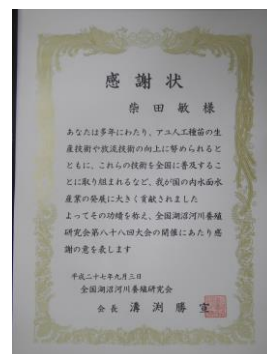 感謝状
柴田敏様
あなたは多年にわたり、アユ人工種苗の生
産技術や放流技術の向上に努められると
ともに、これらの技術を全国に普及するこ
とに取り組まれるなど、我が国の内水面水
産業の発展に大きく貢献されました
よってその功績を称え、全国湖沼河川養殖
研究会第八十八回大会の開催にあたり感
謝の意を表します
平成二十七年九月三日
全国湖沼河川養殖研究会
会長 溝渕勝宣